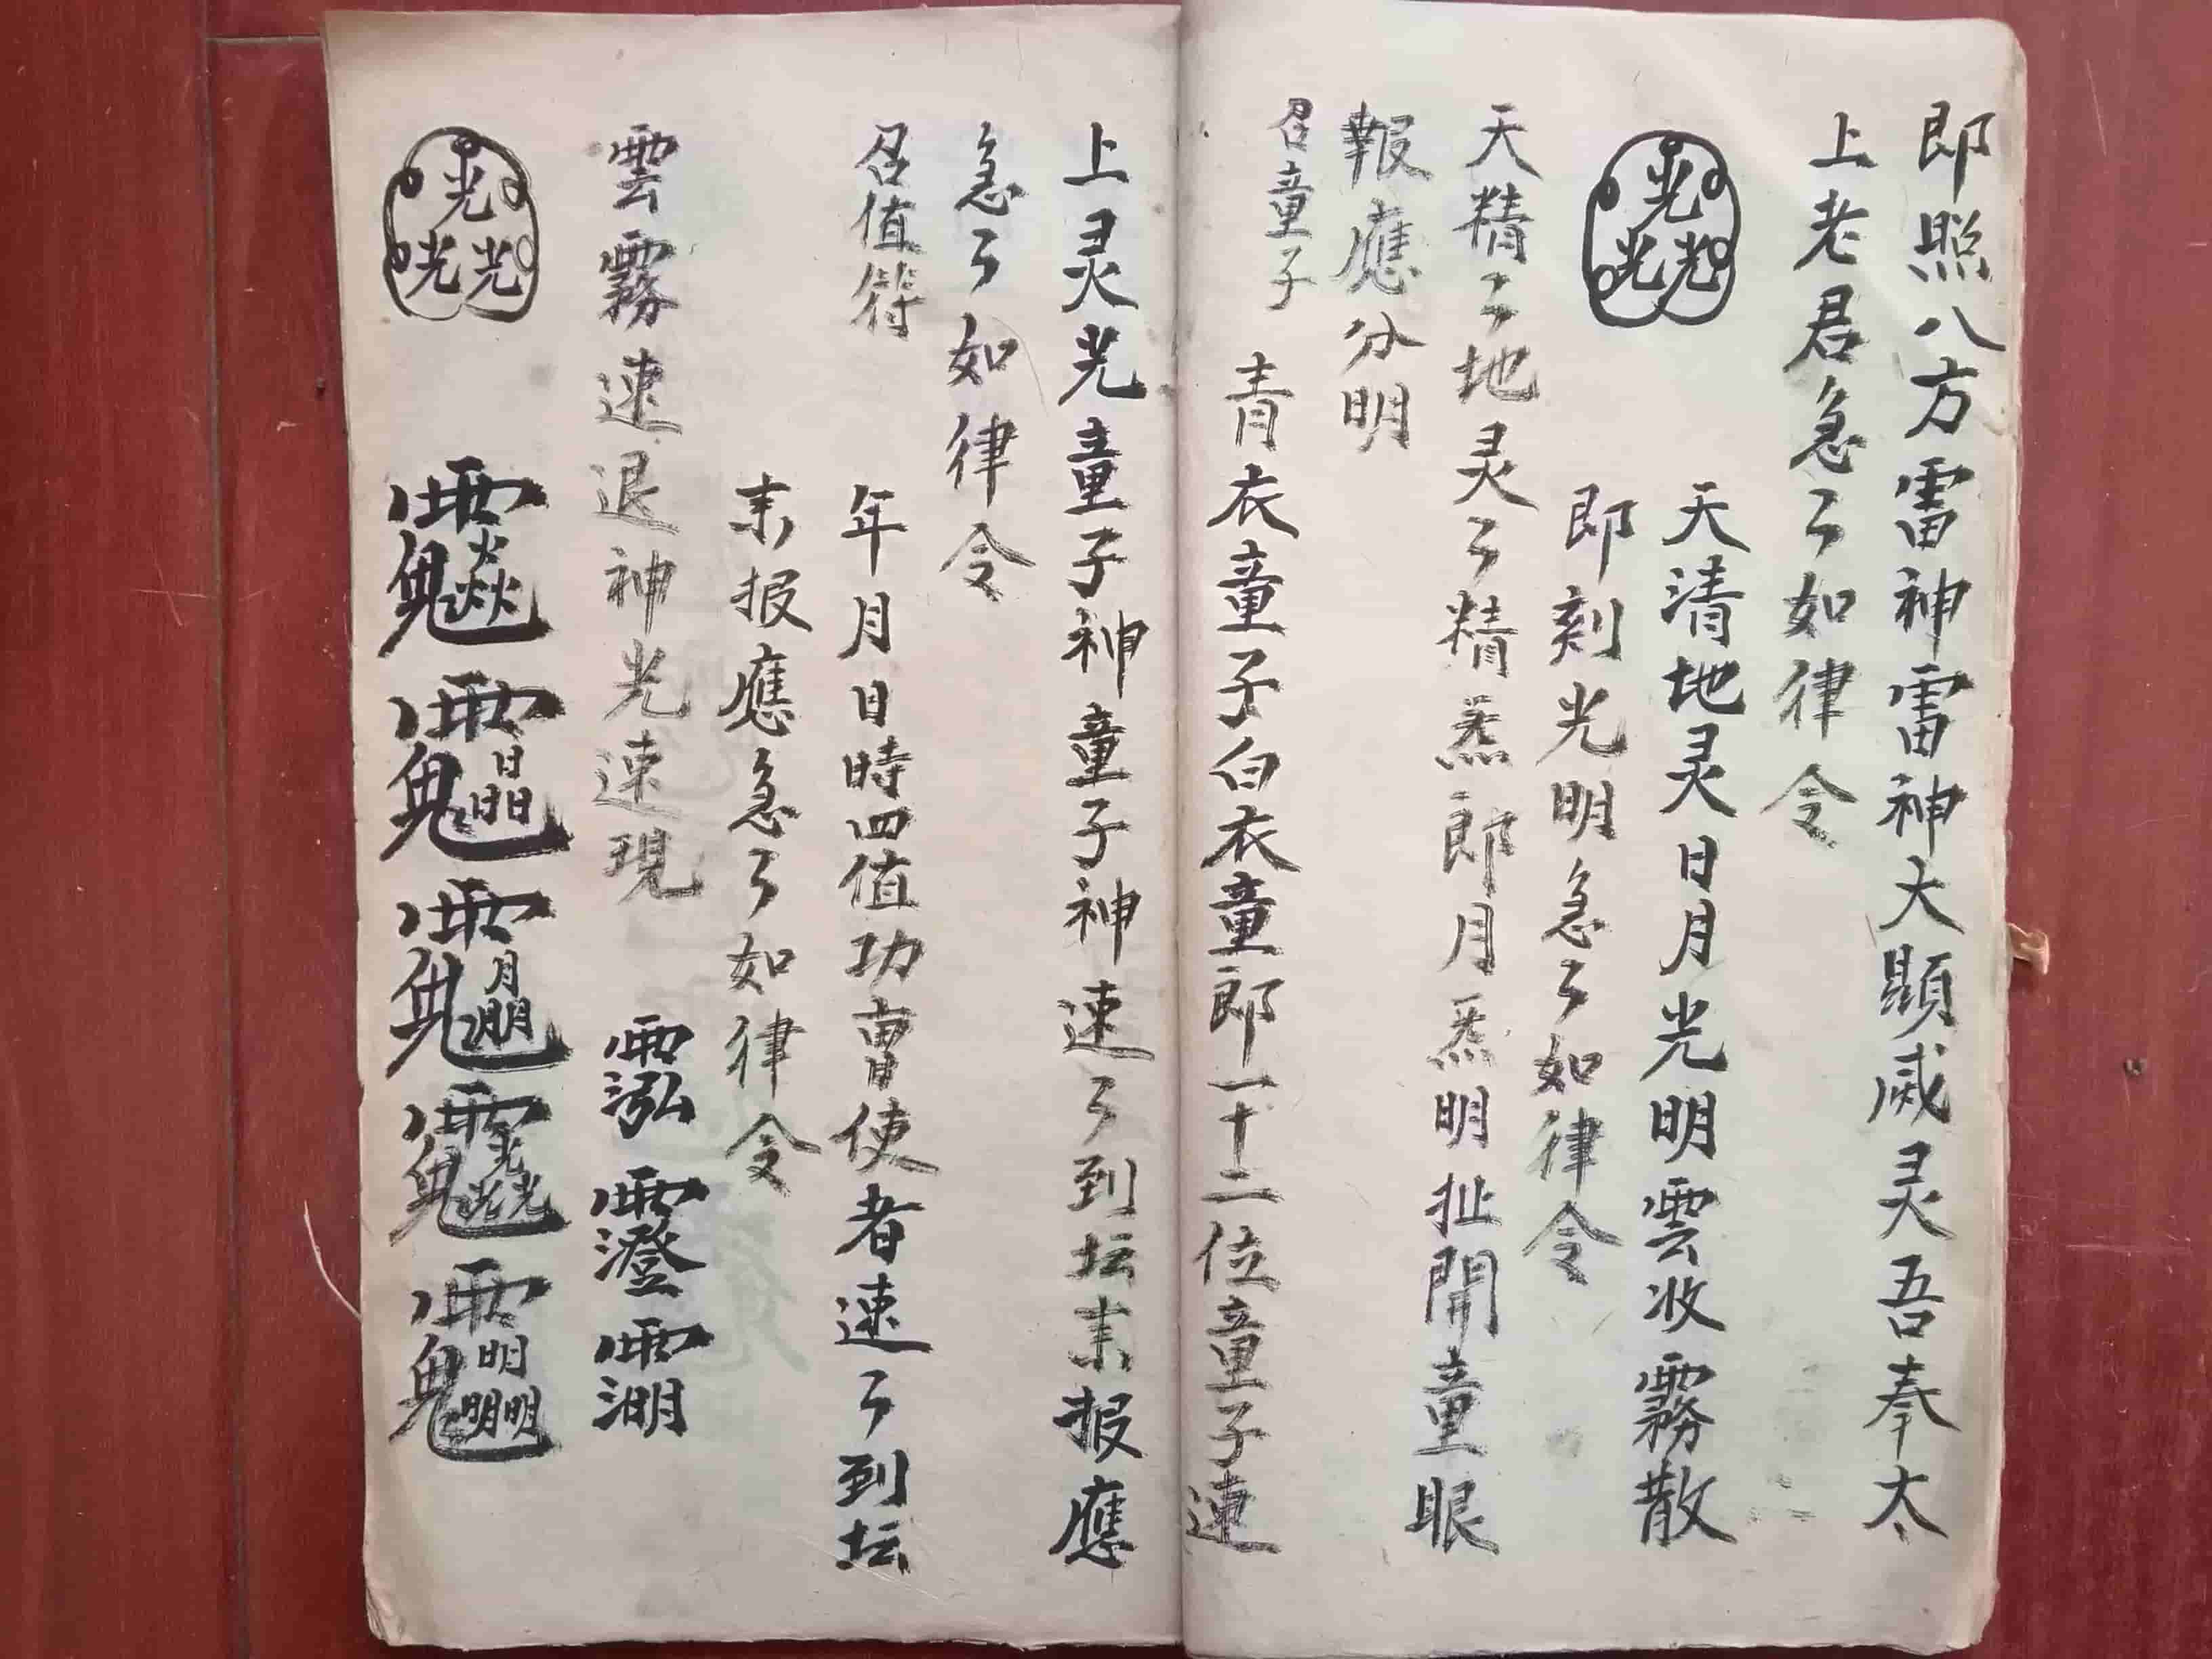 即照八方雷神雷神大顯威灵吾奉太
上老君急々如律令
天清地灵日月光明雲收霧散
光光光
即刻光明急々如律令
天精々地灵々精炁郎月炁明扯開童眼
報應分明
召童子
青衣童子白衣童郎一十二位童子速
上灵光童子神童子神速々到坛耒报應
急々如律令
召值符
年月日時四值功曹使者速々到坛
耒报應急々如律令
雲霧速退神光速現
光光光